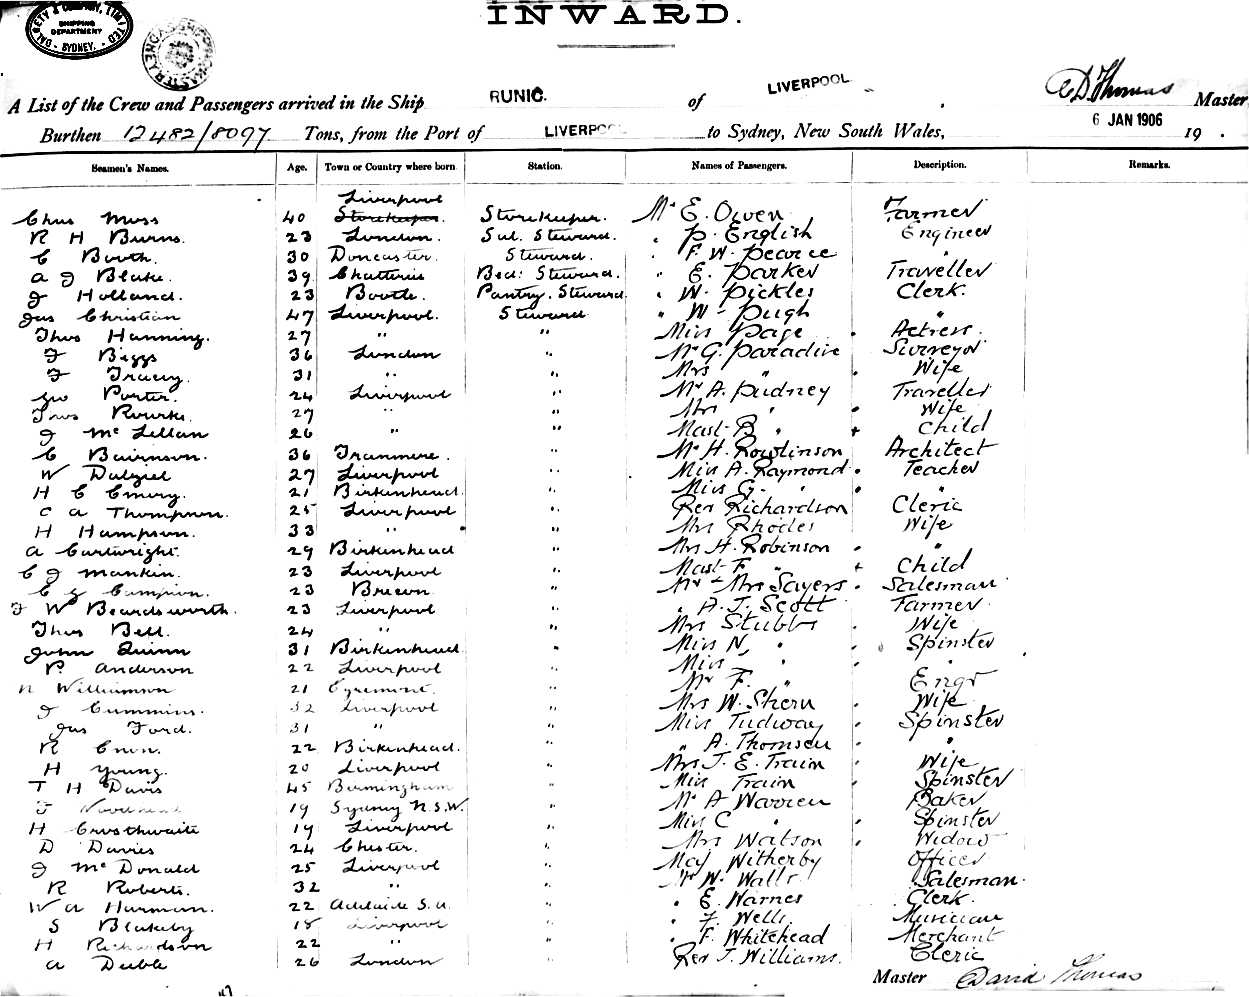 INWARD.
DALGETY & COMPANY, LIMITED
SHIPPING DEPARTMENT
SYDNEY.
A List of the Crew and Passengers arrived in the Ship RUNIC. of LIVERPOOL D. Thomas Master
Burthen 12482/8097 Tons, from the Port of LIVERPOOL to Sydney, New South Wales, 6 JAN 1906 19 .
Seamen's Names. Age. Town or Country where born. Station. Names of Passengers. Description. Remarks.
Liverpool
Chas Moss 40 Storekeeper. Storekeeper. Mr E. Owen Farmer
R H Burns. 23 London. Sal. Steward. " P. English Engineer
C Booth. 30 Doncaster. Steward. " F. W. Pearce "
A J Blake. 39 Chatteris Bed: Steward. " E. Parker Traveller
J Holland. 23 Bootle. Pantry. Steward. " W. Pickles Clerk.
Jas Christian 47 Liverpool. Steward " W. Pugh "
Thos Hanning. 27 " " Miss Page Actress.
F Biggs 36 London " Mr G. Paradise Surveyor
F Tracey. 31 " " Mrs " Wife
Geo Porter. 24 Liverpool " Mr A. Pudney Traveller
Thos Rourke. 27 " " Mrs " Wife
J McLellan 26 " " Mast B " Child
C Bairnson. 36 Tranmere. " Mr H. Rowlinson Architect
W Dalziel 27 Liverpool " Miss A. Raymond Teacher
H C Emery. 21 Birkenhead. " Miss G. " "
C A Thompson. 25 Liverpool " Rev Richardson Cleric
H Hampson. 33 " " Mrs Rhodes Wife
A Cartwright. 29 Birkenhead " Mrs H. Robinson "
C J Mankin. 23 Liverpool " Mast F. " Child
C J Campion. 23 Brecon. " Mr & Mrs Sayers Salesman
F W Beardsworth. 23 Liverpool " " A. J. Scott Farmer
Thos Bell. 24 " " Mrs Stubbs Wife
John Quinn 31 Birkenhead. " Miss N. " Spinster
P. Anderson 22 Liverpool " Miss " "
N Williamson 21 Egremont. " Mr F. " Engr
J Cummins. 32 Liverpool " Mrs W. Shern Wife
Jas Ford. 31 " " Miss Tudway Spinster
R 22 Birkenhead. " " A. Thomsen "
H Young. 20 Liverpool " Mrs J. E. Train Wife
T H Davis 45 Birmingham " Miss Train Spinster
J 19 Sydney N.S.W. " Mr A Warren Baker
H Crosthwaite 19 Liverpool " Miss C " Spinster
D Davies 24 Chester. " Mrs Watson Widow
J McDonald 25 Liverpool " Maj Witherby Officer
R Roberts. 32 " " Mr W. Walls Salesman.
W A Harman. 22 Adelaide S.A. " " E. Warnes Clerk.
S Blakeby 18 Liverpool " " F. Wells Musician
H Richardson 22 " " " F. Whitehead Merchant
A Deeble 26 London " Rev J. Williams. Cleric
Master David Thomas